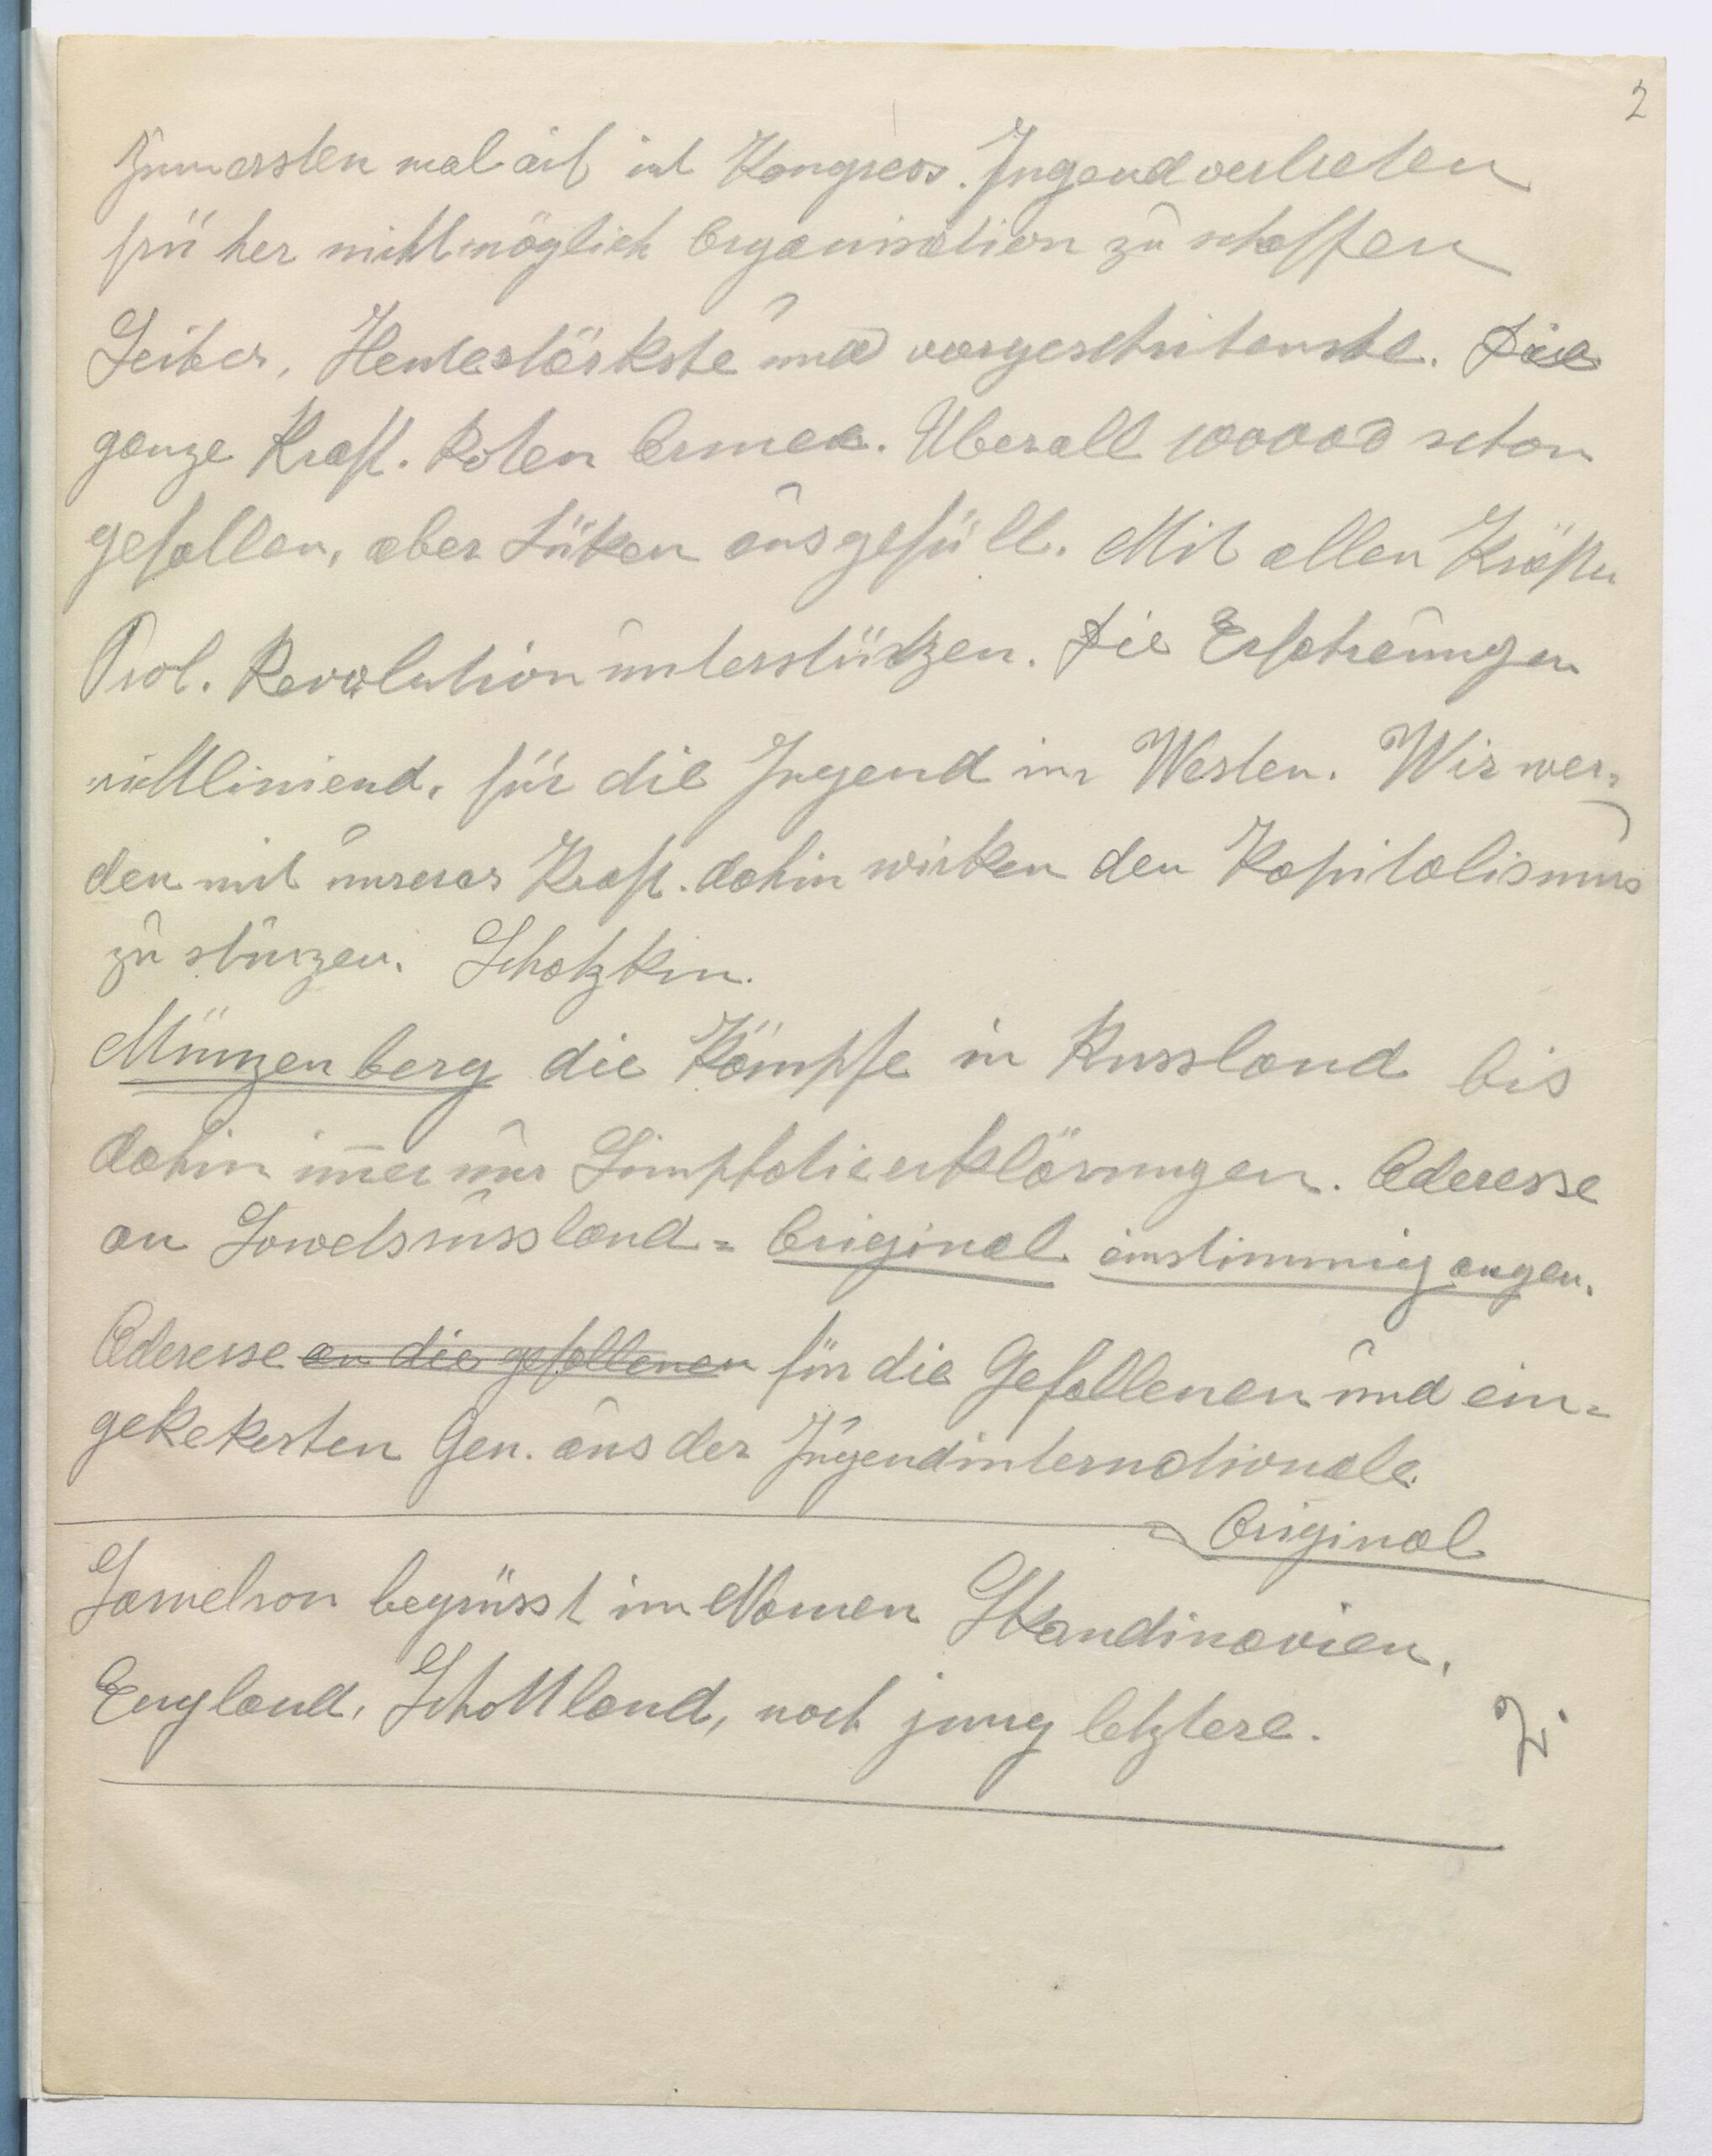 2
Zum ersten mal auf int Kongress. Jugend vertreten
früher nicht möglich Organisation zu schaffen
Leiter, Heute stärkste und vorgeschritenste. Die
ganze Kraft. Roten Armee. Überall 10000 schon
gefallen, aber Lüken ausgefüllt. Mit allen Kräften
Prol. Revolution unterstützen. Die Erfahrungen
richtliniend. für die Jugend im Westen. Wir wer-
den mit unserer Kraft. dahin wirken den Kapitalismus
zu stürzen. Schatzkin.
Münzenberg die Kämpfe in Russland bis
dahin immer nur Simphatieerklärungen. Aderesse
an Sowetsrussland = Original einstimmig angen.
Aderesse an die gefallenen für die Gefallenen und ein-
gekekerten Gen. aus der Jugendinternationale.
Original
Samelson begrüsst im Namen Skandinavien,
England, Schottland, noch jung letztere.
2.